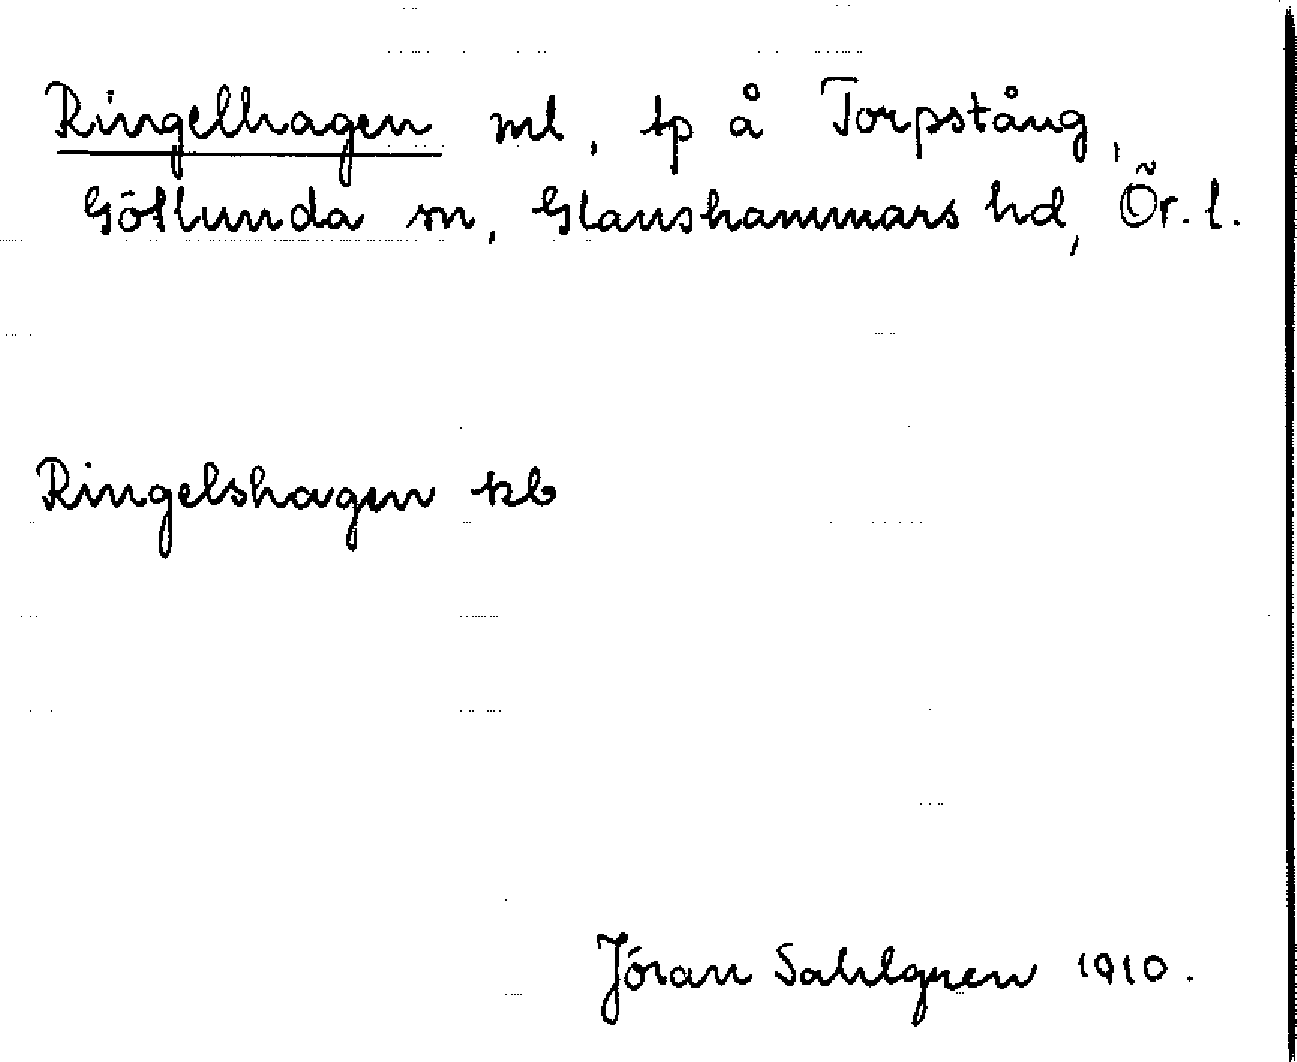 Ringelhagen ml, tp å Torpstång,
Götlunda sn, Glanshammars hd, Ör. l.
Ringelshagen kb
Jöran Sahlgren 1910.